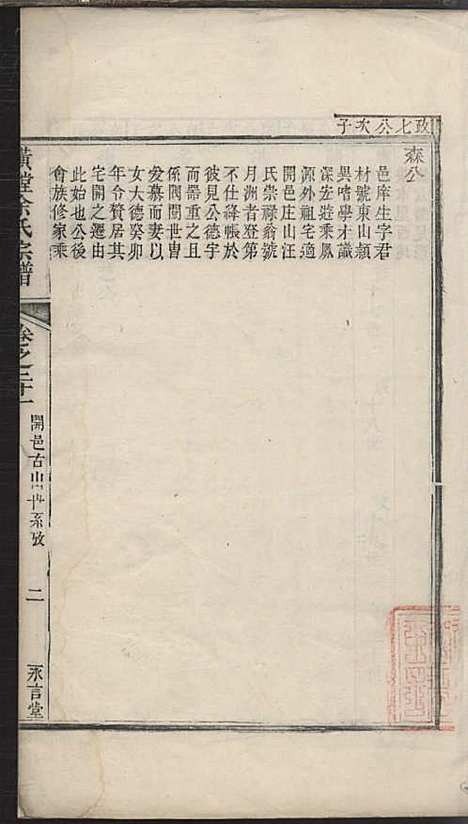 政七公次子
森公
邑庠生字君
材號東山頴
異嗜學才識
深宏遊乘鳳
源外祖宅適
開邑庄山汪
氏崇祿翁號
月洲者登第
不仕絳帳於
彼見公德宇
而器重之且
係閥閱世胄
愛慕而妻以
女大德癸卯
年令贅居其
宅開之遷由
此始也公後
會族修家乘
璜鏜余氏宗譜
卷之二十一
開邑古山世系攷
二
永言堂